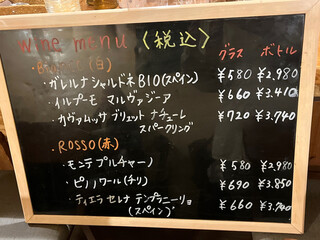 wine menu 〈税込〉
グラス ボトル
(白)
・ガレルナシャルドネBIO(スペイン) ¥580 ¥2,980
・イルプーモ マルヴァジーア ¥660 ¥3,410
・カヴァムッサ ブリュット ナチューレ ¥720 ¥3,740
スパークリング
・ROSSO(赤)
・モンテプルチャーノ ¥580 ¥2,980
・ピノノワール(チリ) ¥690 ¥3,850
・ティエラ セレナ テンプラニーリョ ¥660 ¥3,740
(スペイン)